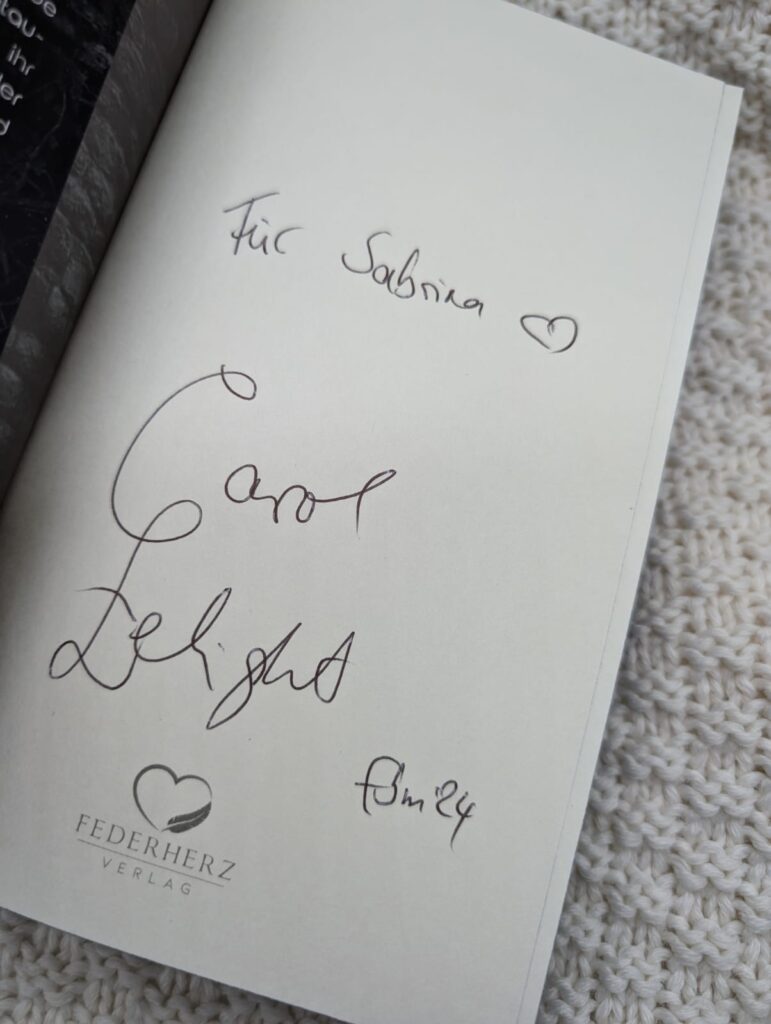 tau-
ihr
Für Sabrina ♡
Carol
Delight
fbm'24
FEDERHERZ
VERLAG